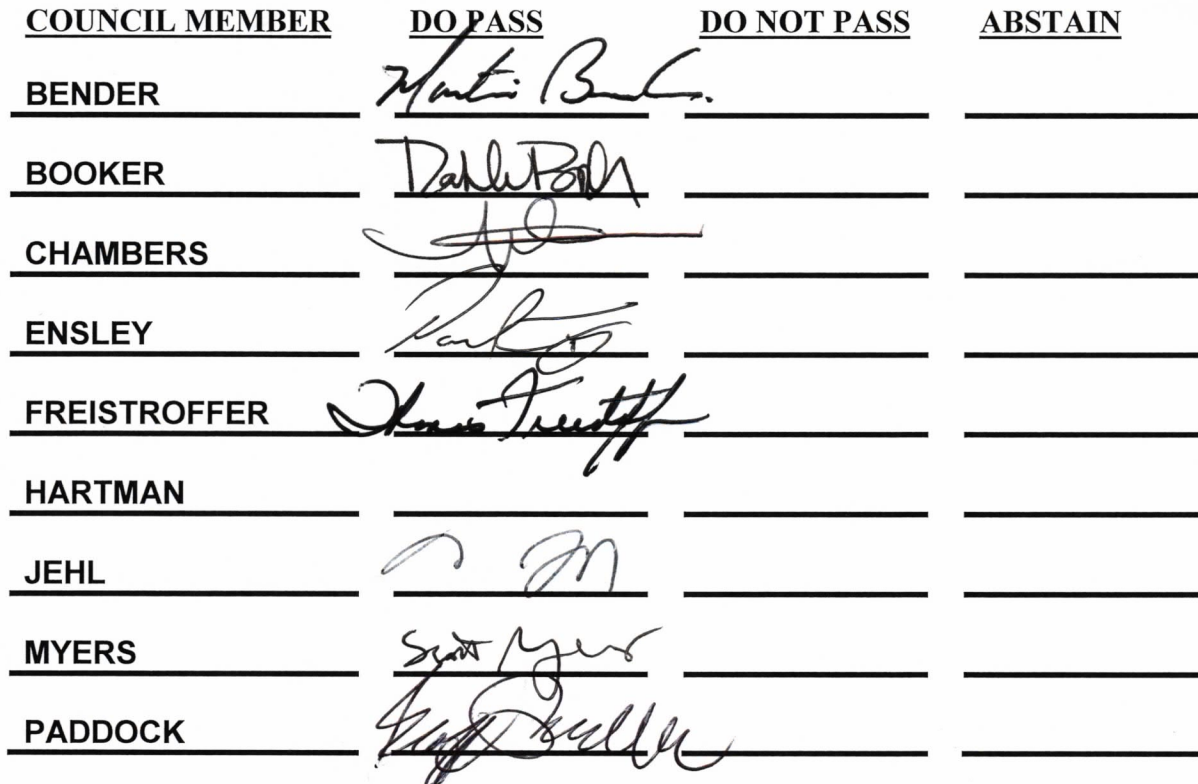 COUNCIL MEMBER DO PASS DO NOT PASS ABSTAIN
BENDER Martin Bender
BOOKER
CHAMBERS
ENSLEY
FREISTROFFER Thomas Freistroffer
HARTMAN
JEHL
MYERS Scott Myers
PADDOCK